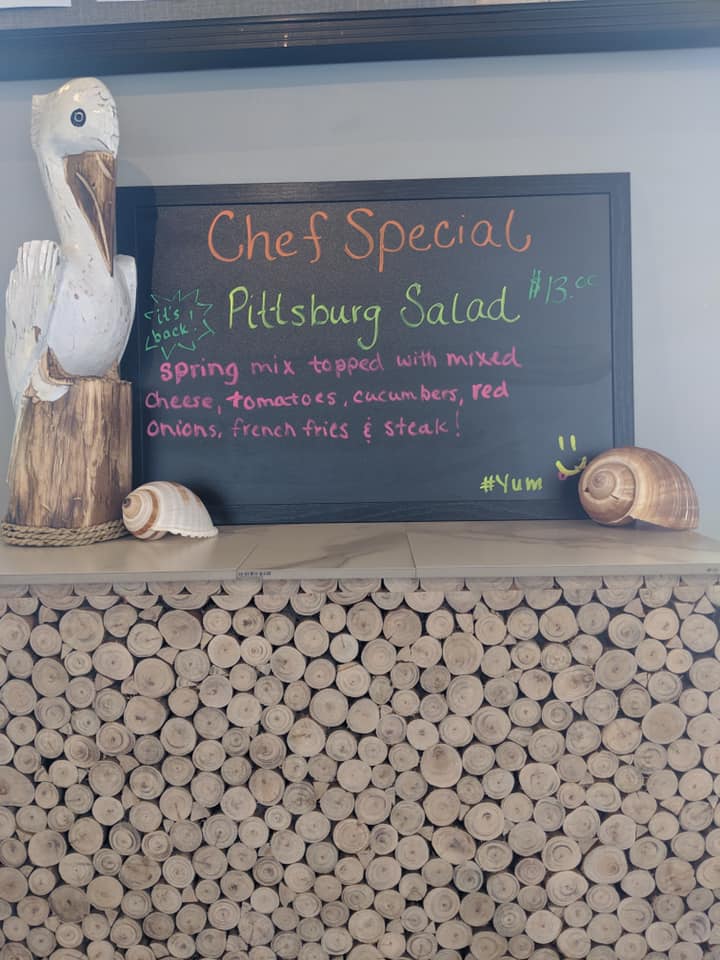 Chef Special
it's
back!
Pittsburg Salad $13.00
spring mix topped with mixed
cheese, tomatoes, cucumbers, red
onions, french fries & steak!
#Yum